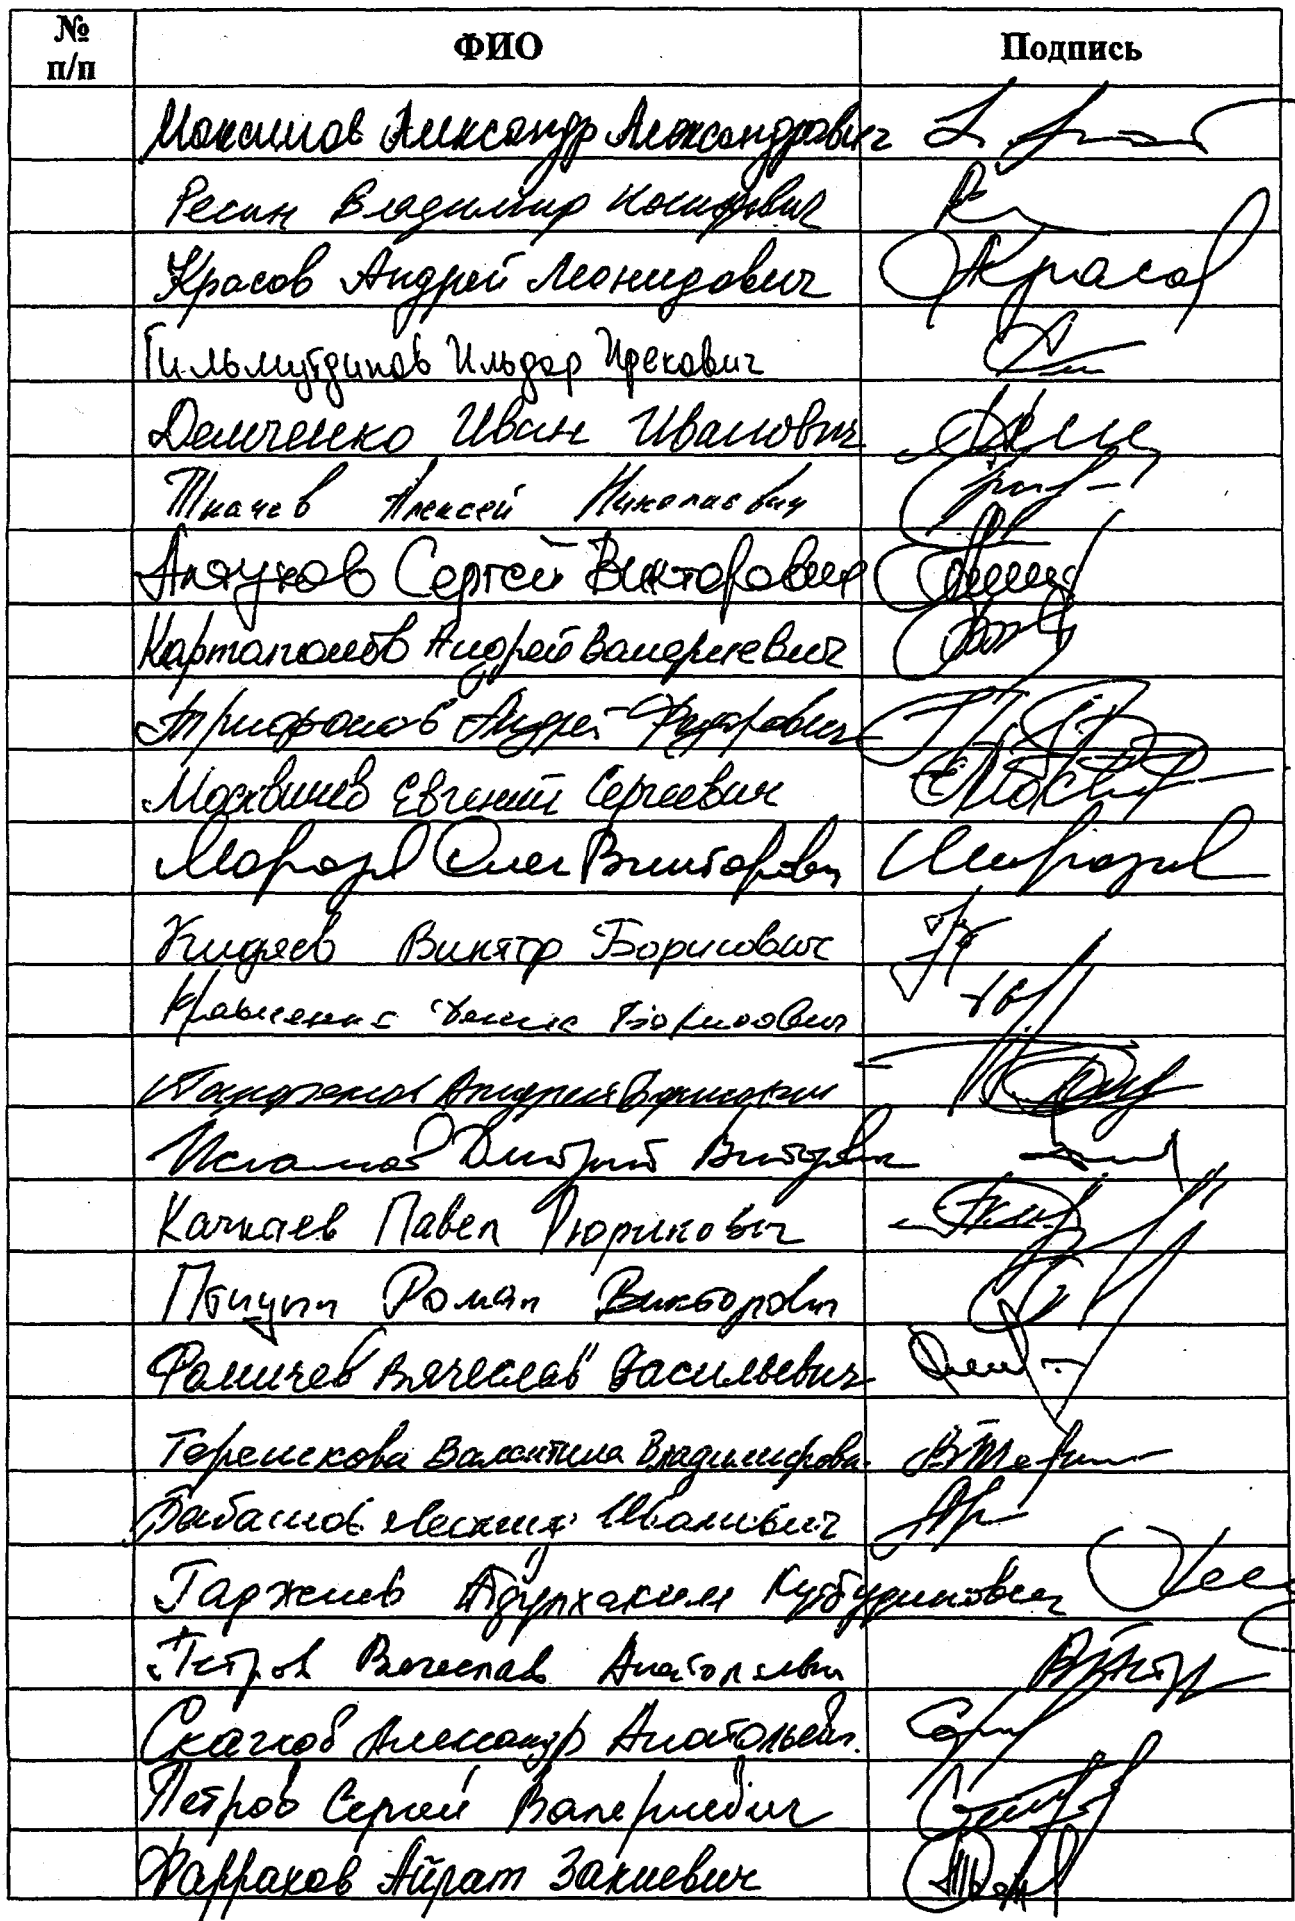 № п/п ФИО Подпись
Максимов Александр Александрович
Ресин Владимир Иосифович
Красов Андрей Леонидович Красов
Гильмутдинов Ильдар Ирекович
Демченко Иван Иванович
Ткачев Алексей Николаевич
Алтухов Сергей Викторович
Картаполов Андрей Валериевич
Трифонов Андрей Федорович
Москвичев Евгений Сергеевич
Морозов Олег Викторович Морозов
Кидяев Виктор Борисович
Кравченко Денис Борисович
Парфенов Андрей Борисович
Исламов Дмитрий Викторович
Качкаев Павел Рюрикович
Птицын Роман Викторович
Фомичев Вячеслав Васильевич
Терешкова Валентина Владимировна
Бабашов Леонид Иванович
Гаджиев Абдулхаким Кутбудинович
Петров Вячеслав Анатольевич
Скачков Александр Анатольевич
Петров Сергей Валериевич
Фаррахов Айрат Закиевич